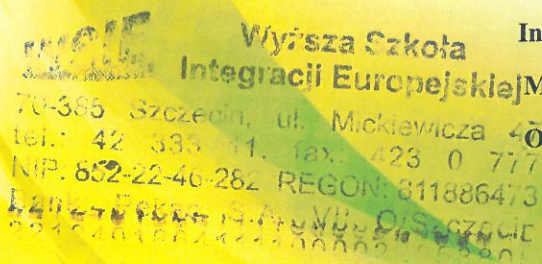 WSIE
Wyższa Szkoła
In
Integracji Europejskiej M
70-385 Szczecin, ul. Mickiewicza 47
O
tel.: 42 333 11, fax.: 423 0 777
NIP: 852-22-46-282 REGON: 811886473
Bank Pekao S.A. VII O/Szczecin